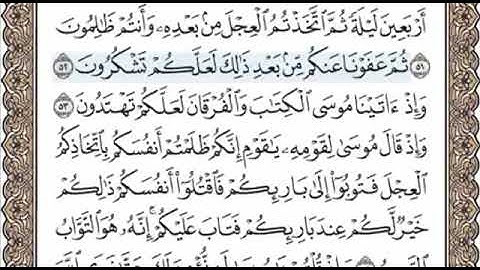 أَرْبَعِينَ لَيْلَةً ثُمَّ ٱتَّخَذْتُمُ ٱلْعِجْلَ مِنۢ بَعْدِهِۦ وَأَنتُمْ ظَٰلِمُونَ
٥١ ثُمَّ عَفَوْنَا عَنكُم مِّنۢ بَعْدِ ذَٰلِكَ لَعَلَّكُمْ تَشْكُرُونَ ٥٢
وَإِذْ ءَاتَيْنَا مُوسَى ٱلْكِتَٰبَ وَٱلْفُرْقَانَ لَعَلَّكُمْ تَهْتَدُونَ ٥٣
وَإِذْ قَالَ مُوسَىٰ لِقَوْمِهِۦ يَٰقَوْمِ إِنَّكُمْ ظَلَمْتُمْ أَنفُسَكُم بِٱتِّخَاذِكُمُ
ٱلْعِجْلَ فَتُوبُوٓا۟ إِلَىٰ بَارِئِكُمْ فَٱقْتُلُوٓا۟ أَنفُسَكُمْ ذَٰلِكُمْ
خَيْرٌ لَّكُمْ عِندَ بَارِئِكُمْ فَتَابَ عَلَيْكُمْ ۚ إِنَّهُۥ هُوَ ٱلتَّوَّابُ